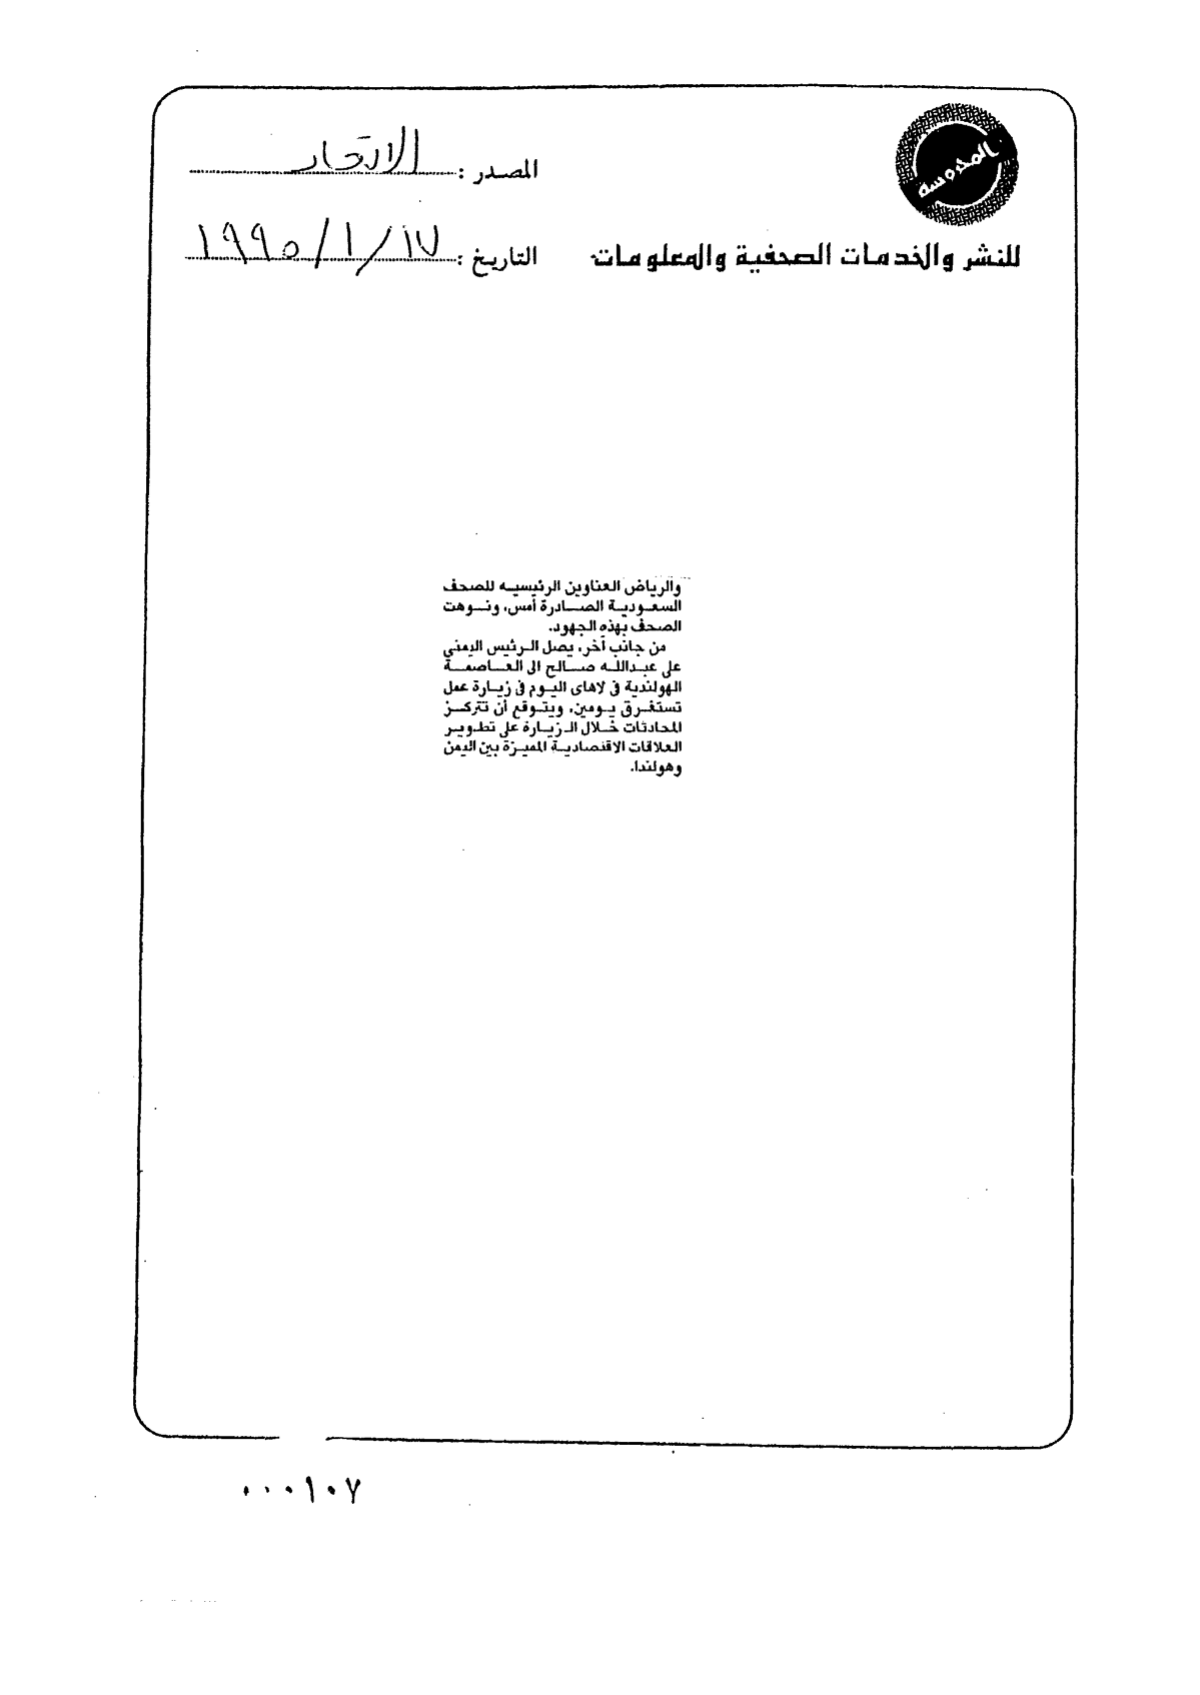 المحروسة
للنشر والخدمات الصحفية والمعلومات
المصدر : الاتحاد
التاريخ : ١٧ / ١ / ١٩٩٥
والرياض العناوين الرئيسيه للصحف
السعودية الصادرة أمس، ونوهت
الصحف بهذه الجهود.
من جانب آخر، يصل الرئيس اليمني
على عبدالله صالح الى العاصمة
الهولندية في لاهاى اليوم في زيارة عمل
تستغرق يومين، ويتوقع أن تتركز
المحادثات خلال الزيارة على تطوير
العلاقات الاقتصادية المميزة بين اليمن
وهولندا.
٠٠٠١٠٧